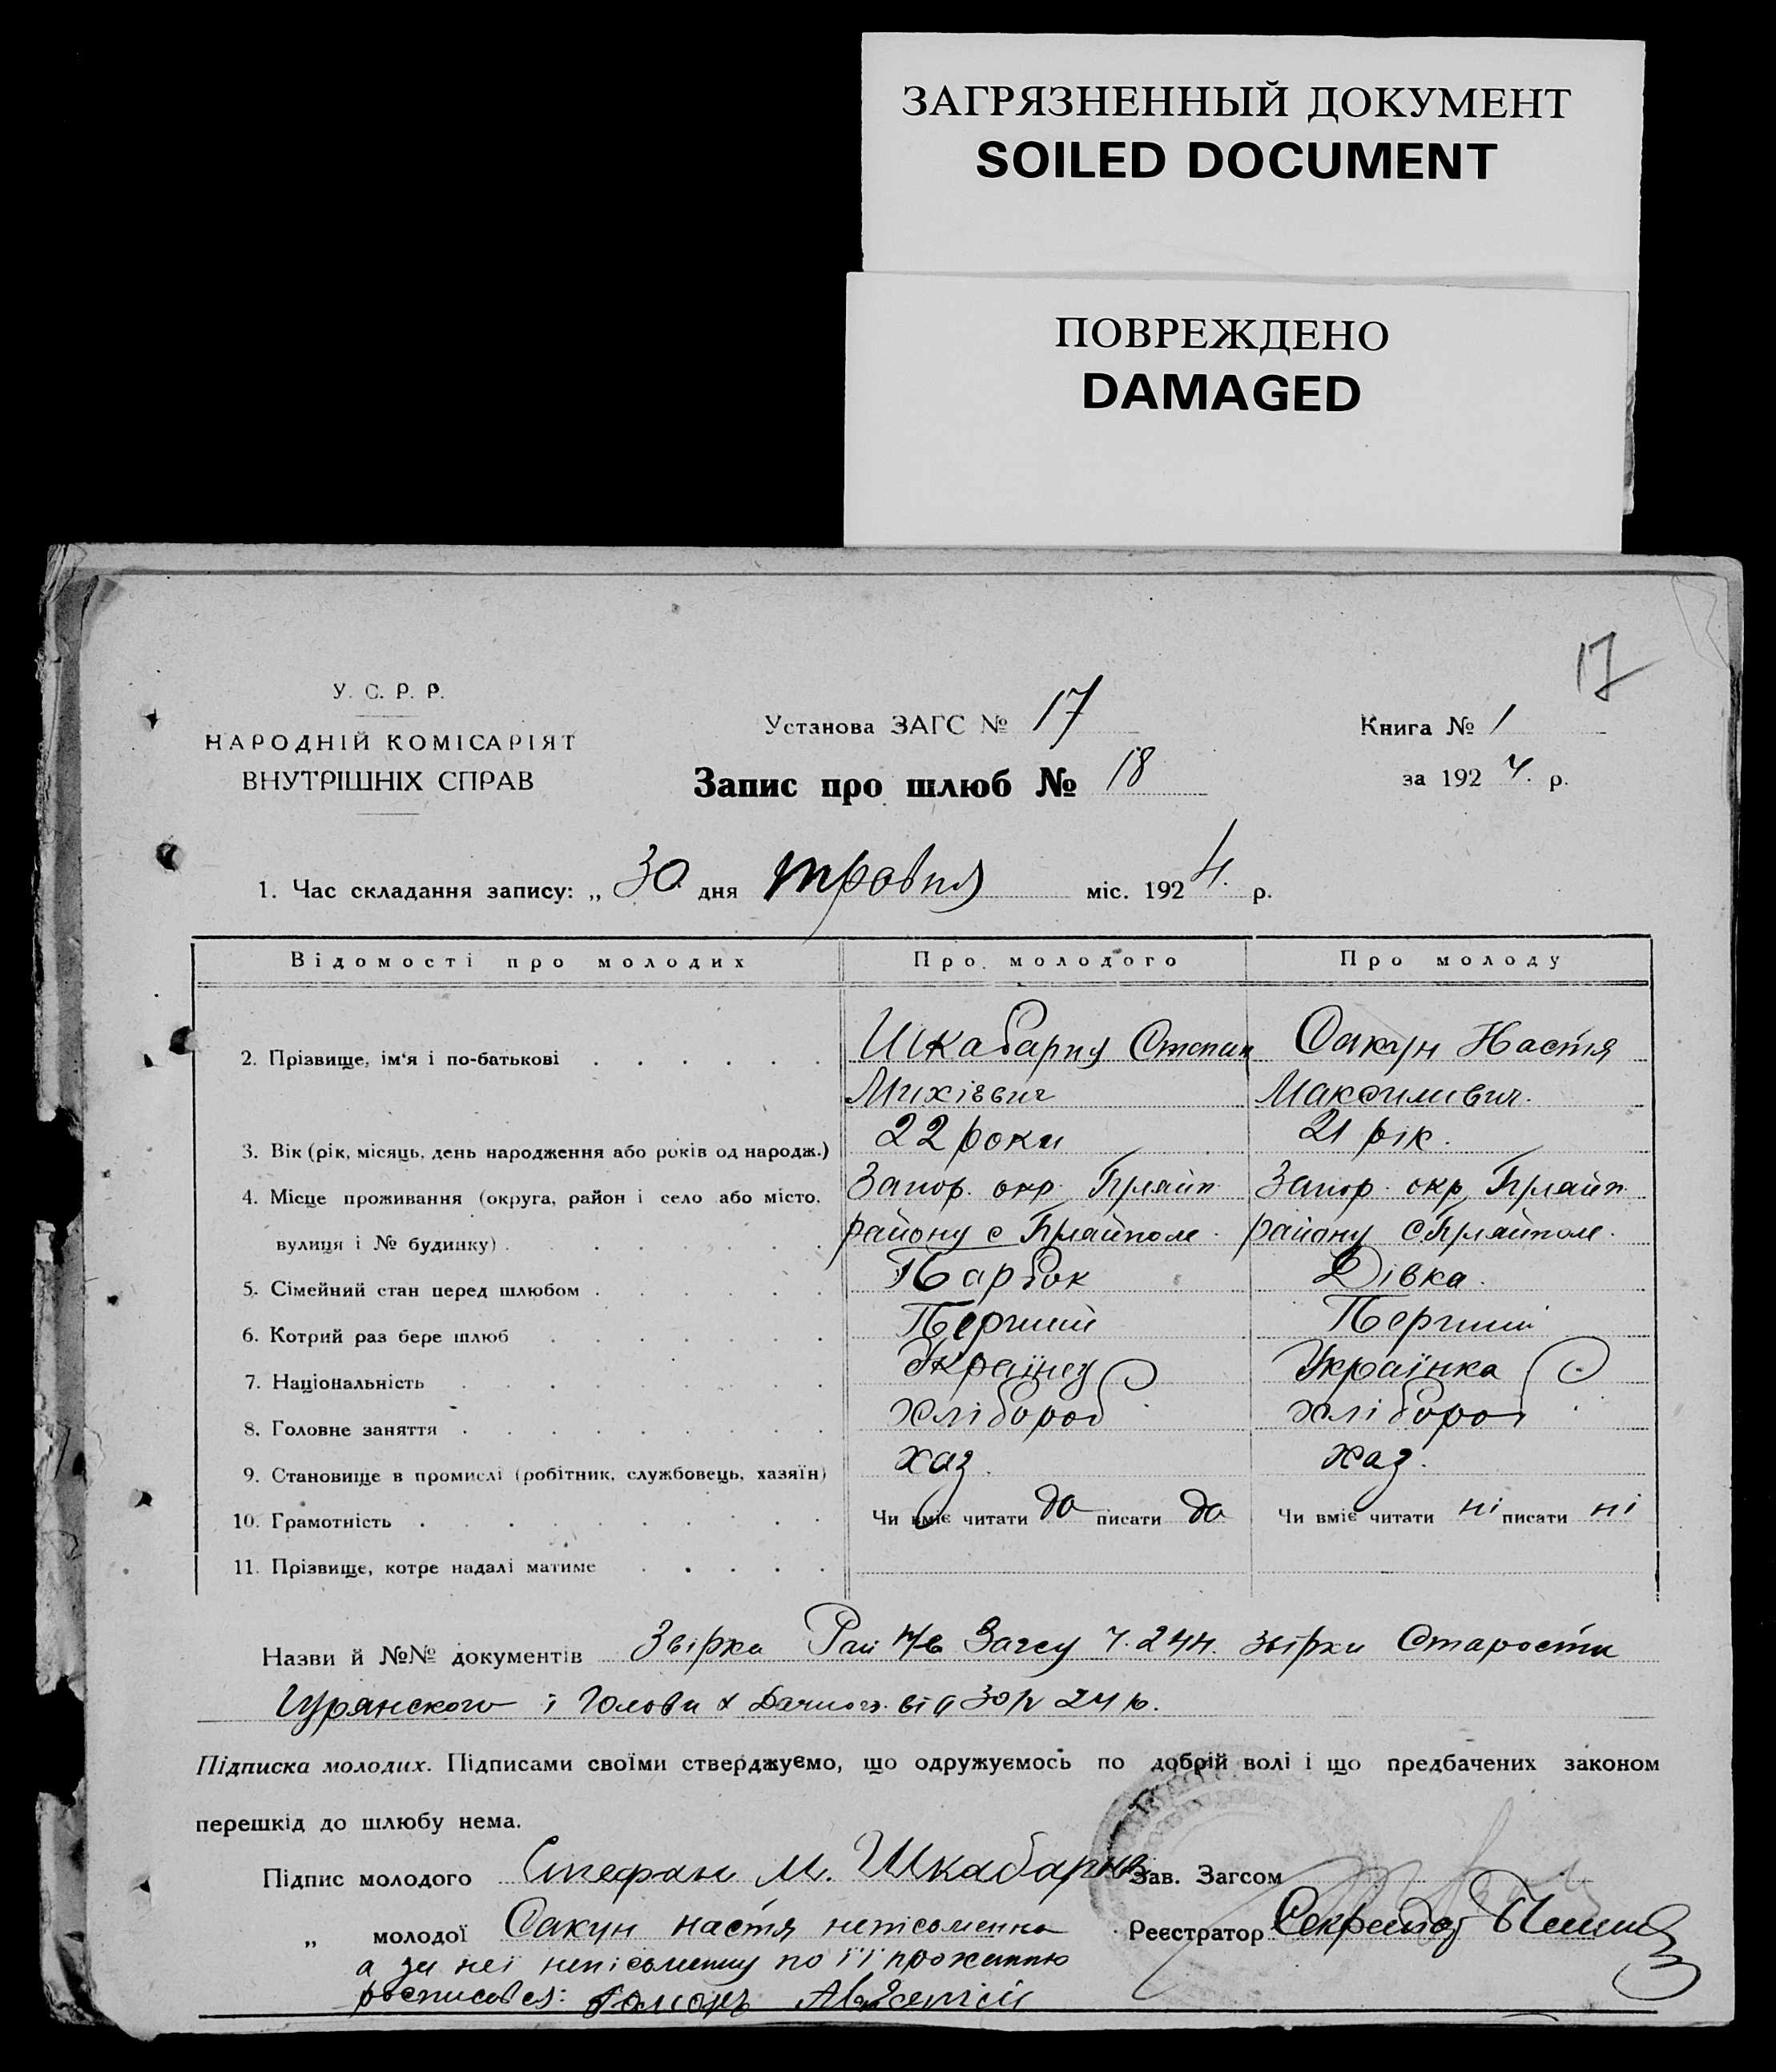 ЗАГРЯЗНЕННЫЙ ДОКУМЕНТ
SOILED DOCUMENT
ПОВРЕЖДЕНО
DAMAGED
17
У. С. Р. Р.
НАРОДНІЙ КОМІСАРІЯТ
ВНУТРІШНІХ СПРАВ
Установа ЗАГС № 17
Запис про шлюб № 18
Книга № 1
за 1924. р.
1. Час складання запису: „ 30 дня травня міс. 1924. р.
Відомості про молодих Про молодого Про молоду
2. Прізвище, ім'я і по-батькові Шкабарну Степан Сакун Настя
Михієвич Максимивич.
3. Вік (рік, місяць, день народження або років од народж.) 22 роки 21 рік.
4. Місце проживання (округа, район і село або місто, Запор. окр. Гуляйп. Запор. окр. Гуляйп.
вулиця і № будинку) району с Гуляйполе. району с. Гуляйполе.
5. Сімейний стан перед шлюбом Парубок Дівка.
6. Котрий раз бере шлюб Перший Перший
7. Національність Українец Українка
8. Головне заняття хлібороб хлібороб
9. Становище в промислі (робітник, службовець, хазяїн) хаз. хаз.
10. Грамотність Чи вміє читати да писати да Чи вміє читати ні писати ні
11. Прізвище, котре надалі матиме
Назви й №№ документів Звірка Рай Загсу ч. 244. звірки Старости
і Голови від 30/V 24 р.
Підписка молодих. Підписами своїми стверджуємо, що одружуємось по добрій волі і що предбачених законом
перешкід до шлюбу нема.
Підпис молодого Стефан М. Шкабарня Зав. Загсом
„ молодої Сакун настя неписьменна Реєстратор Секретар
а за неї неписьменну по її проханню
росписався: